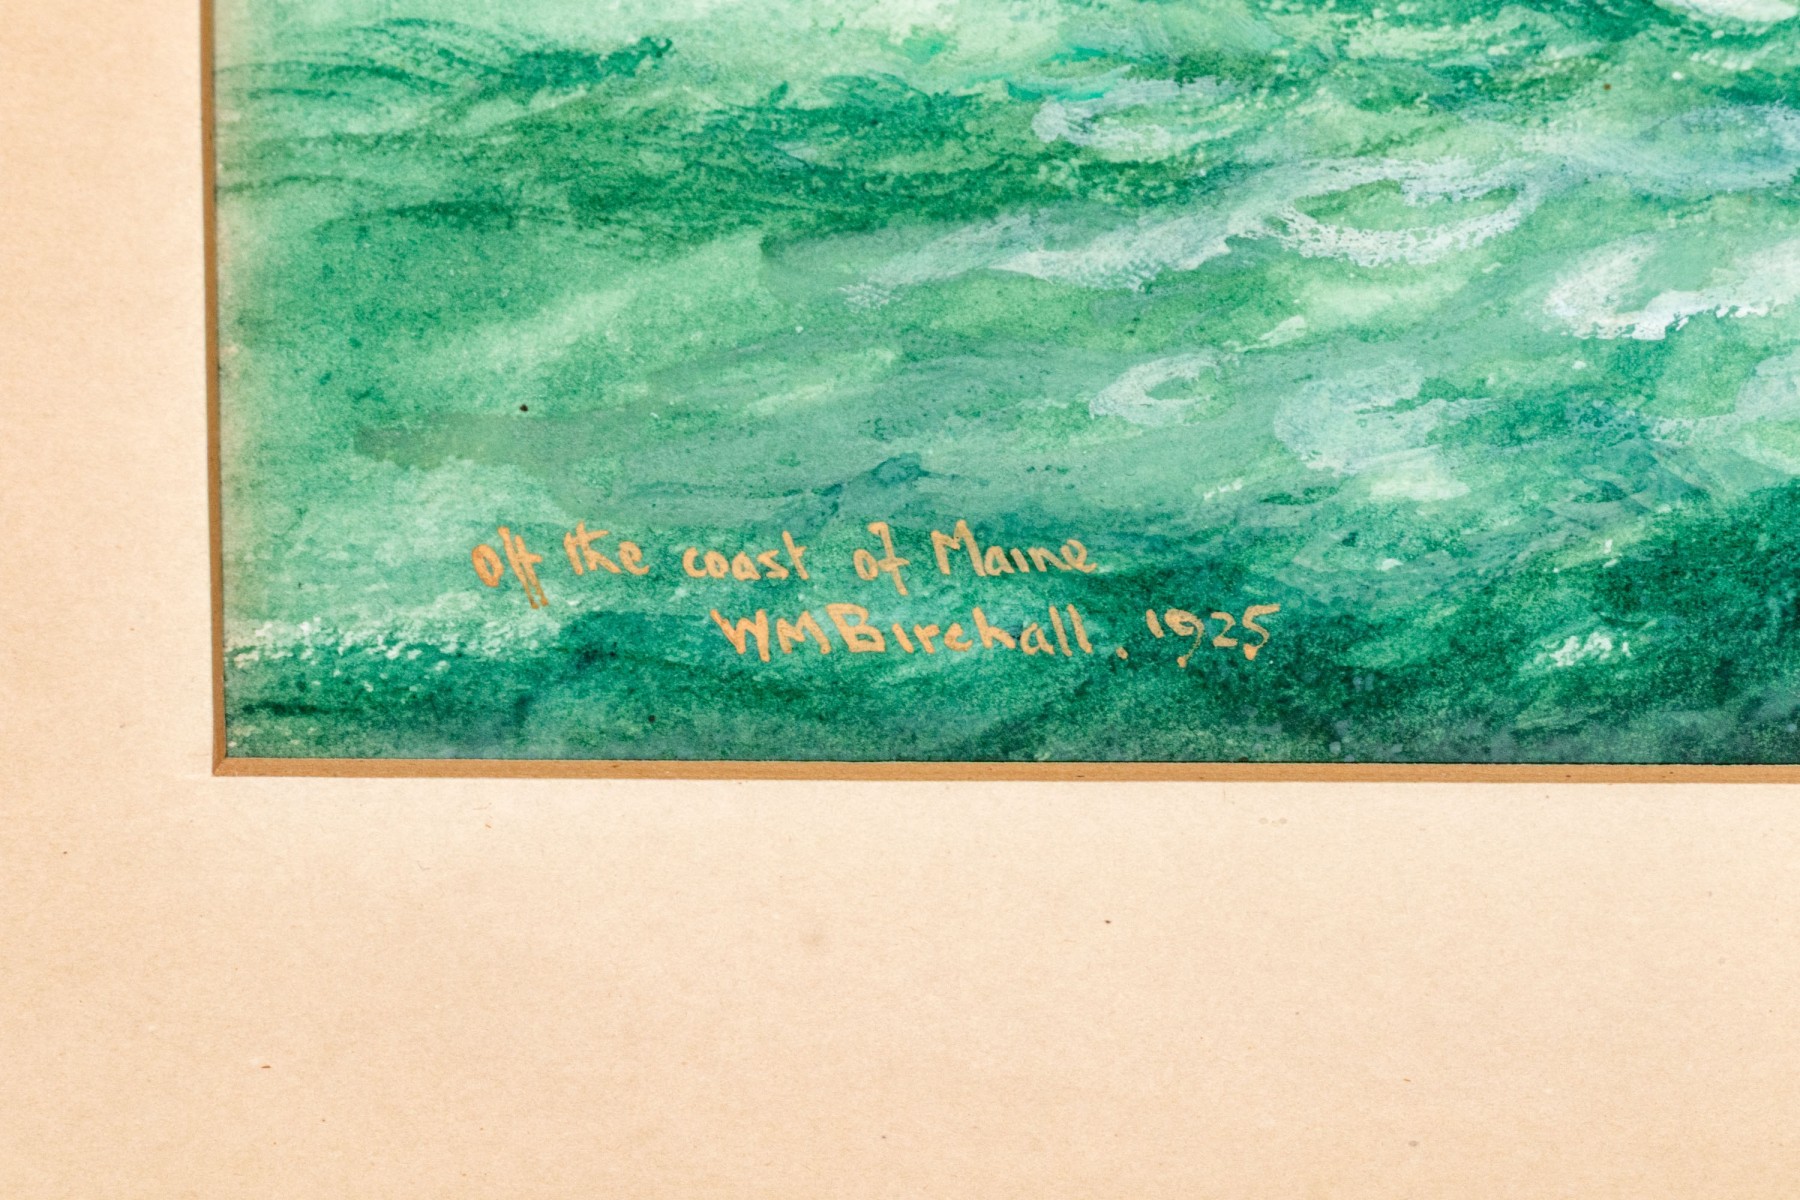 off the coast of Maine
WMBirchall. 1925